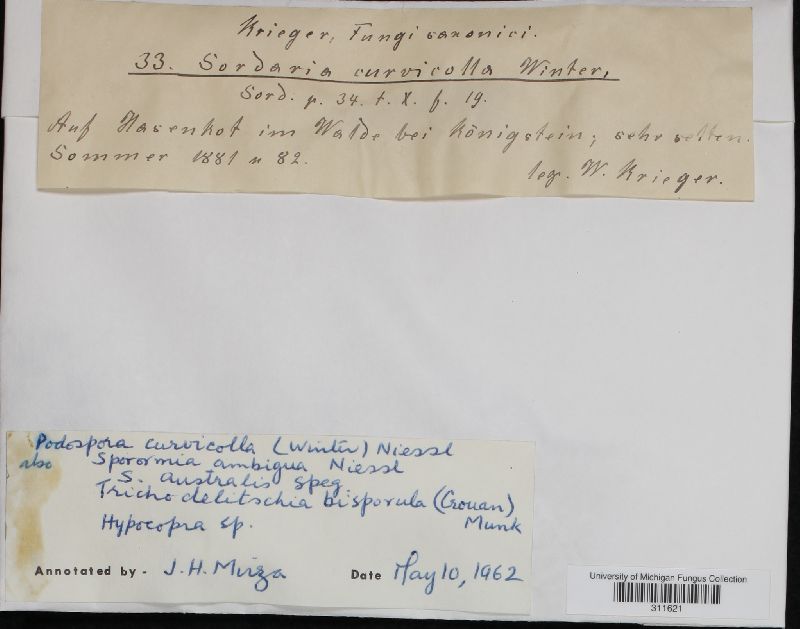 Krieger, Fungi saxonici.
33. Sordaria curvicolla Winter,
Sord. p. 34. t. X. f. 19.
Auf Hasenkot im Walde bei Königstein; sehr selten.
Sommer 1881 u 82.
leg. W. Krieger.
Podospora curvicolla (Winter) Niessl
also Sporormia ambigua Niessl
S. australis Speg
Trichodelitschia bisporula (Crouan)
Munk
Hypocopra sp.
Annotated by - J. H. Mirza Date May 10, 1962
University of Michigan Fungus Collection
311621